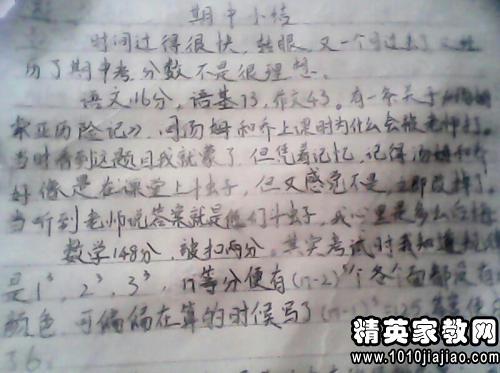 期中小结
时间过得很快，转眼，又一个月过去了，又经
历了期中考，分数不是很理想。
语文116分，语基73，作文43。有一条关于《汤姆
索亚历险记》，问汤姆和乔上课时为什么会被老师打。
当时看到这题目我就蒙了，但凭着记忆，记得汤姆和乔
好像是在课堂上斗虫子，但又感觉不是，立即改掉了。
当听到老师说答案就是他们斗虫子，我心里是多么后悔
数学148分，被扣两分。其实考试时我知道规律
是1³，2³，3³，n等分便有(n-2)³个各个面都没有
颜色，可偏偏在算的时候写了
36
精英家教网
www.1010jiajiao.com